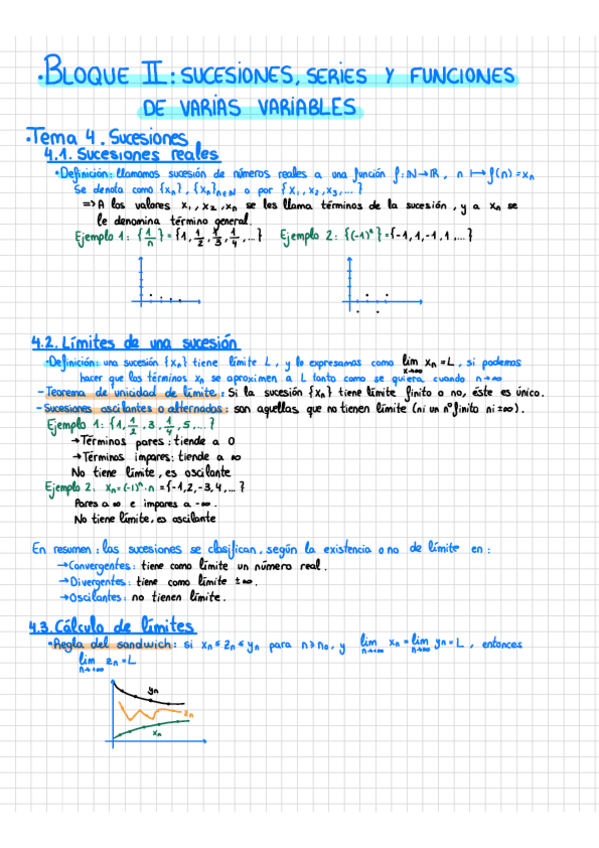 ·BLOQUE II: SUCESIONES, SERIES Y FUNCIONES
DE VARIAS VARIABLES
·Tema 4. Sucesiones
4.1. Sucesiones reales
·Definición: llamamos sucesión de números reales a una función f: ℕ→ℝ, n ↦ f(n) = xₙ
Se denota como {xₙ}, {xₙ}ₙ∈ℕ o por {x₁, x₂, x₃, ...}
=> A los valores x₁, x₂, xₙ se les llama términos de la sucesión, y a xₙ se
le denomina término general.
Ejemplo 1: {1/n} = {1, 1/2, 1/3, 1/4, ...} Ejemplo 2: {(-1)ⁿ} = {-1, 1, -1, 1, ...}
4.2. Límites de una sucesión
·Definición: una sucesión {xₙ} tiene límite L, y lo expresamos como lim x→∞ xₙ = L, si podemos
hacer que los términos xₙ se aproximen a L tanto como se quiera cuando n→∞
- Teorema de unicidad de límite: Si la sucesión {xₙ} tiene límite finito o no, éste es único.
- Sucesiones oscilantes o alternadas: son aquellas que no tienen límite (ni un nº finito ni ±∞).
Ejemplo 1: {1, 1/2, 3, 1/4, 5, ...}
→Términos pares: tiende a 0
→Términos impares: tiende a ∞
No tiene límite, es oscilante
Ejemplo 2: xₙ = (-1)ⁿ·n = {-1, 2, -3, 4, ...}
Pares a ∞ e impares a -∞.
No tiene límite, es oscilante
En resumen: las sucesiones se clasifican, según la existencia o no de límite en:
→Convergentes: tiene como límite un número real.
→Divergentes: tiene como límite ±∞.
→Oscilantes: no tienen límite.
4.3. Cálculo de límites
·Regla del sandwich: si xₙ ≤ zₙ ≤ yₙ para n ≥ n₀, y lim n→+∞ xₙ = lim n→+∞ yₙ = L, entonces
lim n→+∞ zₙ = L
yₙ
zₙ
xₙ